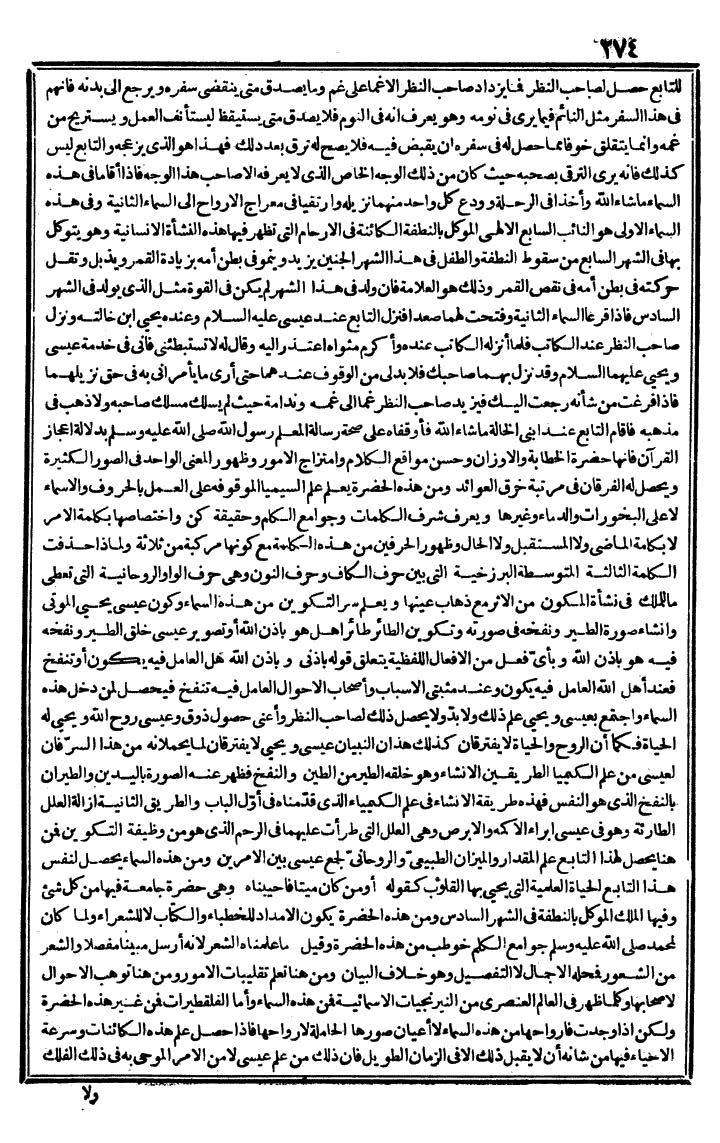 ٢٧٤
للتابع حصل لصاحب النظر فما يزداد صاحب النظر الا غما على غم وما يصدق متى ينقضى سفره ويرجع الى بدنه فانهم
فى هذا السفر مثل النائم فيما يرى فى نومه وهو يعرف انه فى النوم فلا يصدق متى يستيقظ ليستأنف العمل ويستريح من
غمه وانما يتقلق خوفا مما حصل له فى سفره ان يقبض فيه فلا يصح له ترق بعد ذلك فهذا هو الذى يزعجه والتابع ليس
كذلك فانه يرى الترقى بصحبه حيث كان من ذلك الوجه الخاص الذى لا يعرفه الا صاحب هذا الوجه فاذا أقاما فى هذه
السماء ما شاء الله وأخذا فى الرحلة وودع كل واحد منهما نزيله وارتقيا فى معراج الارواح الى السماء الثانية وفى هذه
السماء الاولى هو النائب السابع الالهى الموكل بالنطفة الكائنة فى الارحام التى تظهر فيها هذه النشأة الانسانية وهو يتوكل
بها فى الشهر السابع من سقوط النطفة والطفل فى هذا الشهر الجنين يزيد وينمو فى بطن أمه بزيادة القمر ويذبل وتقل
حركته فى بطن أمه فى نقص القمر وذلك هو العلامة فان ولد فى هذا الشهر لم يكن فى القوة مثل الذى يولد فى الشهر
السادس فاذا قرعا السماء الثانية وفتحت لهما صعدا فنزل التابع عند عيسى عليه السلام وعنده يحيى ابن خالته ونزل
صاحب النظر عند الكاتب فلما أنزله الكاتب عنده وأكرم مثواه اعتذر اليه وقال له لا تستبطئنى فانى فى خدمة عيسى
ويحيى عليهما السلام وقد نزل بهما صاحبك فلا بد لى من الوقوف عندهما حتى أرى ما يأمرانى به فى حق نزيلهما
فاذا فرغت من شأنه رجعت اليك فيزيد صاحب النظر غما الى غمه وندامة حيث لم يسلك مسلك صاحبه ولا ذهب فى
مذهبه فاقام التابع عند ابنى الخالة ما شاء الله فأوقفاه على صحة رسالة المعلم رسول الله صلى الله عليه وسلم بدلالة اعجاز
القرآن فانها حضرة الخطابة والاوزان وحسن مواقع الكلام وامتزاج الامور وظهور المعنى الواحد فى الصور الكثيرة
ويحصل له الفرقان فى مرتبة خرق العوائد ومن هذه الحضرة يعلم علم السيميا الموقوفه على العمل بالحروف والاسماء
لا على البخورات والدماء وغيرها ويعرف شرف الكلمات وجوامع الكلم وحقيقة كن واختصاصها بكلمة الامر
لا بكلمة الماضى ولا المستقبل ولا الحال وظهور الحرفين من هذه الكلمة مع كونها مركبة من ثلاثة ولماذا حذفت
الكلمة الثالثة المتوسطة البرزخية التى بين حرف الكاف وحرف النون وهى حرف الواو الروحانية التى تعطى
ما للملك فى نشأة المكون من الاثر مع ذهاب عينها ويعلم سر التكوين من هذه السماء وكون عيسى يحيى الموتى
وانشاء صورة الطير ونفخه فى صورته وتكوين الطائر طائرا هل هو باذن الله أو تصوير عيسى خلق الطير ونفخه
فيه هو باذن الله وبأى فعل من الافعال اللفظية يتعلق قوله باذنى و باذن الله هل العامل فيه يكون أو تنفخ
فعند أهل الله العامل فيه يكون وعند مثبتى الاسباب وأصحاب الاحوال العامل فيه تنفخ فيحصل لمن دخل هذه
السماء واجتمع بعيسى ويحيى علم ذلك ولا بد ولا يحصل ذلك لصاحب النظر وأعنى حصول ذوق وعيسى روح الله ويحيى له
الحياة فكما أن الروح والحياة لا يفترقان كذلك هذان النبيان عيسى ويحيى لا يفترقان لما يحملانه من هذا السر فان
لعيسى من علم الكيميا الطريقين الانشاء وهو خلقه الطير من الطين والنفخ فظهر عنه الصورة باليدين والطيران
بالنفخ الذى هو النفس فهذه طريقة الانشاء فى علم الكيمياء الذى قدمناه فى أول الباب والطريق الثانية ازالة العلل
الطارئة وهو فى عيسى ابراء الاكمه والابرص وهى العلل التى طرأت عليهما فى الرحم الذى هو من وظيفة التكوين فمن
هنا يحصل لهذا التابع علم المقدار والميزان الطبيعى والروحانى لجمع عيسى بين الامرين ومن هذه السماء يحصل لنفس
هذا التابع الحياة العلمية التى يحيى بها القلوب كقوله أومن كان ميتا فاحييناه وهى حضرة جامعة فيها من كل شئ
وفيها الملك الموكل بالنطفة فى الشهر السادس ومن هذه الحضرة يكون الامداد للخطباء والكتاب لا للشعراء ولما كان
لمحمد صلى الله عليه وسلم جوامع الكلم خوطب من هذه الحضرة وقيل ما علمناه الشعر لانه أرسل مبينا مفصلا والشعر
من الشعور فمحله الاجمال لا التفصيل وهو خلاف البيان ومن هنا تعلم تقليبات الامور ومن هنا توهب الاحوال
لاصحابها وكلما ظهر فى العالم العنصرى من النيرنجيات الاسمائية فمن هذه السماء وأما الفلقطيرات فمن غير هذه الحضرة
ولكن اذا وجدت فارواحها من هذه السماء لا أعيان صورها الحاملة لارواحها فاذا حصل علم هذه الكائنات وسرعة
الاحياء فيها من شانه أن لا يقبل ذلك الا فى الزمان الطويل فان ذلك من علم عيسى لا من الامر الموحى به فى ذلك الفلك
ولا